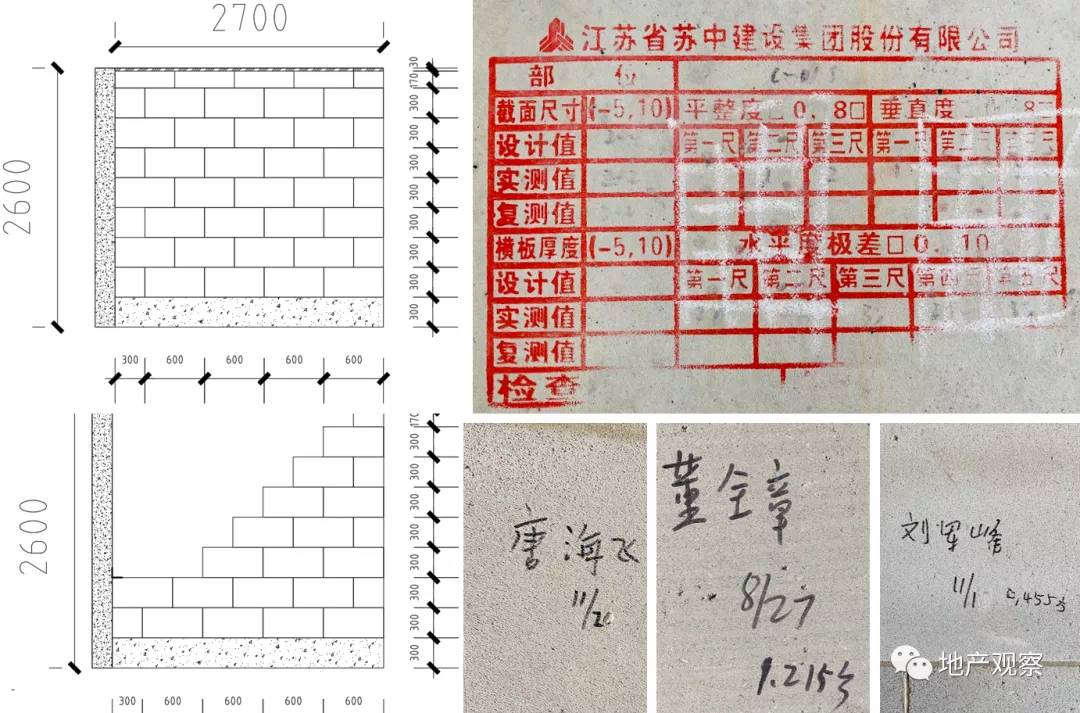 2700
2600
30
170
300
300
300
300
300
300
300
300
300 600 600 600 600
2600
170
300
300
300
300
300
300
300
300
300 600 600 600 600
江苏省苏中建设集团股份有限公司
部 位
截面尺寸 (-5,10) 平整度□0, 8□ 垂直度 0, 8□
设计值 第一尺 第二尺 第三尺 第一尺 第二尺
实测值
复测值
横板厚度 (-5,10) 水平度极差□0, 10
设计值 第一尺 第二尺 第三尺 第四尺 第五尺
实测值
复测值
检查
唐海飞
11/20
董全章
8/27
1.215方
刘军峰
11/1 0.455方
地产观察